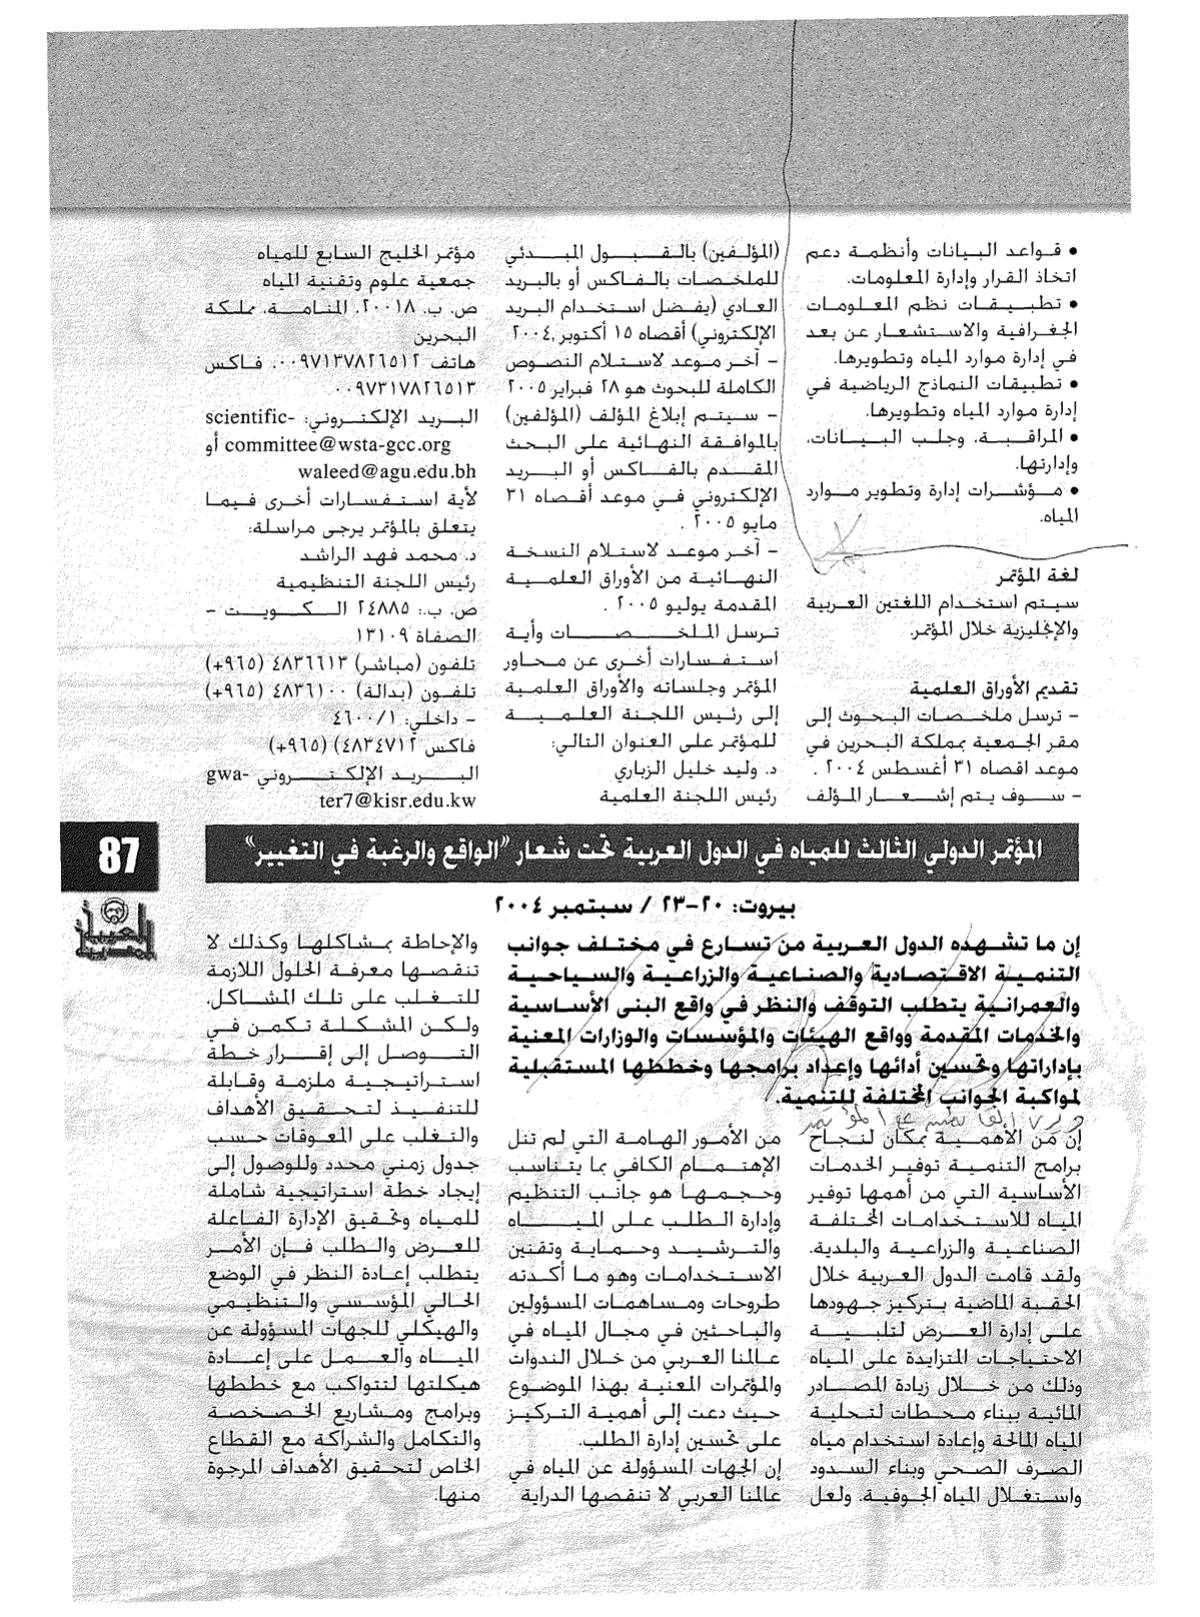 • قواعد البيانات وأنظمة دعم
اتخاذ القرار وإدارة المعلومات.
• تطبيقات نظم المعلومات
الجغرافية والاستشعار عن بعد
في إدارة موارد المياه وتطويرها.
• تطبيقات النماذج الرياضية في
إدارة موارد المياه وتطويرها.
• المراقبة، وجلب البيانات،
وإدارتها.
• مؤشرات إدارة وتطوير موارد
المياه.
لغة المؤتمر
سيتم استخدام اللغتين العربية
والإنجليزية خلال المؤتمر.
تقديم الأوراق العلمية
– ترسل ملخصات البحوث إلى
مقر الجمعية بمملكة البحرين في
موعد اقصاه ٣١ أغسطس ٢٠٠٤ .
– سوف يتم إشعار المؤلف
(المؤلفين) بالقبول المبدئي
للملخصات بالفاكس أو بالبريد
العادي (يفضل استخدام البريد
الإلكتروني) أقصاه ١٥ أكتوبر ,٢٠٠٤
– آخر موعد لاستلام النصوص
الكاملة للبحوث هو ٢٨ فبراير ٢٠٠٥
– سيتم إبلاغ المؤلف (المؤلفين)
بالموافقة النهائية على البحث
المقدم بالفاكس أو البريد
الإلكتروني في موعد أقصاه ٣١
مايو ٢٠٠٥ .
– آخر موعد لاستلام النسخة
النهائية من الأوراق العلمية
المقدمة يوليو ٢٠٠٥ .
ترسل الملخصات وأية
استفسارات أخرى عن محاور
المؤتمر وجلساته والأوراق العلمية
إلى رئيس اللجنة العلمية
للمؤتمر على العنوان التالي:
د. وليد خليل الزباري
رئيس اللجنة العلمية
مؤتمر الخليج السابع للمياه
جمعية علوم وتقنية المياه
ص. ب. ٢٠٠١٨، المنامة، مملكة
البحرين
هاتف ٠٠٩٧١٣٧٨٢٦٥١٢، فاكس
٠٠٩٧٣١٧٨٢٦٥١٣
البريد الإلكتروني: scientific-
committee@wsta-gcc.org أو
waleed@agu.edu.bh
لأية استفسارات أخرى فيما
يتعلق بالمؤتمر يرجى مراسلة:
د. محمد فهد الراشد
رئيس اللجنة التنظيمية
ص. ب.: ٢٤٨٨٥ الكويت –
الصفاة ١٣١٠٩
تلفون (مباشر) ٤٨٣٦٦١٣ (٩٦٥+)
تلفون (بدالة) ٤٨٣٦١٠٠ (٩٦٥+)
– داخلي: ٤٦٠٠/١
فاكس ٤٨٣٤٧١٢) (٩٦٥+)
البريد الإلكتروني gwa-
ter7@kisr.edu.kw
87
المؤتمر الدولي الثالث للمياه في الدول العربية تحت شعار "الواقع والرغبة في التغيير"
بيروت: ٢٠–٢٣ / سبتمبر ٢٠٠٤
إن ما تشهده الدول العربية من تسارع في مختلف جوانب
التنمية الاقتصادية والصناعية والزراعية والسياحية
والعمرانية يتطلب التوقف والنظر في واقع البنى الأساسية
والخدمات المقدمة وواقع الهيئات والمؤسسات والوزارات المعنية
بإداراتها وتحسين أدائها وإعداد برامجها وخططها المستقبلية
لمواكبة الجوانب المختلفة للتنمية.
إن من الأهمية بمكان لنجاح
برامج التنمية توفير الخدمات
الأساسية التي من أهمها توفير
المياه للاستخدامات المختلفة
الصناعية والزراعية والبلدية.
ولقد قامت الدول العربية خلال
الحقبة الماضية بتركيز جهودها
على إدارة العرض لتلبية
الاحتياجات المتزايدة على المياه
وذلك من خلال زيادة المصادر
المائية ببناء محطات لتحلية
المياه المالحة وإعادة استخدام مياه
الصرف الصحي وبناء السدود
واستغلال المياه الجوفية. ولعل
من الأمور الهامة التي لم تنل
الإهتمام الكافي بما يتناسب
وحجمها هو جانب التنظيم
وإدارة الطلب على المياه
والترشيد وحماية وتقنين
الاستخدامات وهو ما أكدته
طروحات ومساهمات المسؤولين
والباحثين في مجال المياه في
عالمنا العربي من خلال الندوات
والمؤتمرات المعنية بهذا الموضوع
حيث دعت إلى أهمية التركيز
على تحسين إدارة الطلب.
إن الجهات المسؤولة عن المياه في
عالمنا العربي لا تنقصها الدراية
والإحاطة بمشاكلها وكذلك لا
تنقصها معرفة الحلول اللازمة
للتغلب على تلك المشاكل،
ولكن المشكلة تكمن في
التوصل إلى إقرار خطة
استراتيجية ملزمة وقابلة
للتنفيذ لتحقيق الأهداف
والتغلب على المعوقات حسب
جدول زمني محدد وللوصول إلى
إيجاد خطة استراتيجية شاملة
للمياه وتحقيق الإدارة الفاعلة
للعرض والطلب فإن الأمر
يتطلب إعادة النظر في الوضع
الحالي المؤسسي والتنظيمي
والهيكلي للجهات المسؤولة عن
المياه والعمل على إعادة
هيكلتها لتتواكب مع خططها
وبرامج ومشاريع الخصخصة
والتكامل والشراكة مع القطاع
الخاص لتحقيق الأهداف المرجوة
منها.